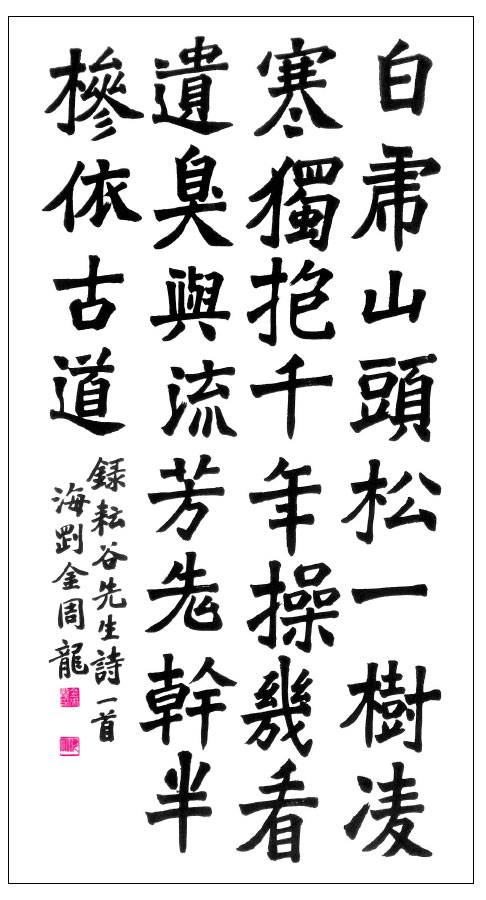 白虎山頭松一樹凌
寒獨抱千年操幾看
遺臭與流芳老幹半
槮依古道
録耘谷先生詩一首
海剛金周龍